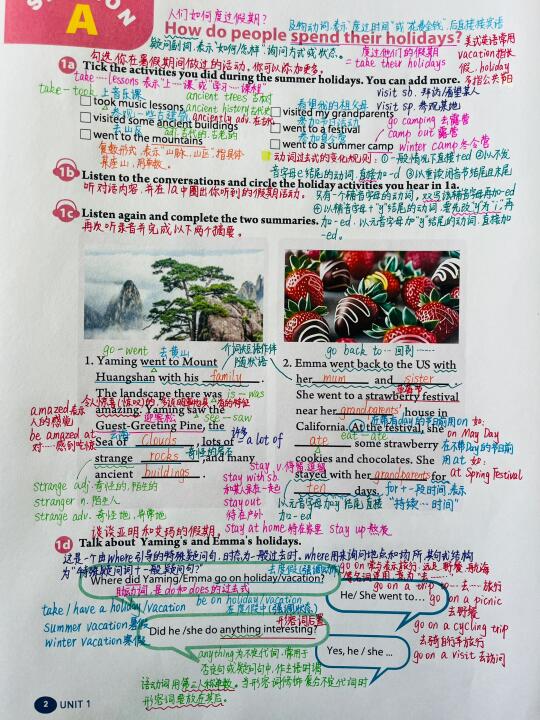 人们如何度过假期?
及物动词,表示"度过时间"或"花费金钱",后直接接宾语
A
How do people spend their holidays?
疑问副词,表示"如何/怎样",询问方式或状态。
度过他们的假期
= take their holidays
美式英语常用
vacation指长
假,holiday
多指公共节日
勾选你在暑假期间做过的活动,你可以添加更多。
1a Tick the activities you did during the summer holidays. You can add more.
take … lessons 表示"上…课"或"学习…课程"
visit sb. 拜访/看望某人
take - took 上音乐课
ancient trees 古树
visit sp. 参观某地
took music lessons
ancient history 古代史
看望他的祖父母
visited my grandparents
go camping 去露营
参观一些古建筑
visited some ancient buildings
参加一个节日活动
went to a festival
camp out 露营
去山区
went to the mountains
adj. 古代的,古老的
参加夏令营
went to a summer camp
winter camp 冬令营
复数形式表示"山脉,山区",指具体
某座山,用单数。
动词过去式的变化规则: ①一般情况下直接+ed ②以不发
音字母e结尾的动词,直接加-d ③以重读闭音节结尾且末尾
1b Listen to the conversations and circle the holiday activities you hear in 1a.
听对话内容,并在1a中圈出你听到的假期活动。
只有一个辅音字母的动词,双写该辅音字母再加-ed
④以辅音字母+"y"结尾的动词,要先改"y"为"i",再
1c Listen again and complete the two summaries.
加-ed,以元音字母加"y"结尾的动词,直接加
再次听录音并完成以下两个摘要。
-ed。
go - went 去黄山
介词短语作伴
随状语
1. Yaming went to Mount
Huangshan with his family.
The landscape there was
is - was
amazing. Yaming saw the
迎客松
see - saw
Guest-Greeting Pine, the
云海
Sea of Clouds, lots of
许多
= a lot of
strange rocks, and many
奇怪的岩石
ancient buildings.
amazed 表示
人的感觉
be amazed at
对……感到吃惊
strange adj. 奇怪的,陌生的
stranger n. 陌生人
strange adv. 奇怪地,异常地
go back to … 回到……
2. Emma went back to the US with
her mum and sister.
草莓节
She went to a strawberry festival
near her grandparents' house in
California. At the festival, she
eat - ate
ate some strawberry
cookies and chocolates. She
stayed with her grandparents for
ten days.
for + 一段时间,表示
"持续…时间"
以元音字母加"y"结尾,直接
加-ed
在带有day的节日前用on 如:
on May Day
在不带Day的节日前
用at 如:
at Spring Festival
stay v. 停留,逗留
stay with sb.
和某人呆在一起
stay out
待在户外
stay at home 待在家里
stay up 熬夜
谈谈亚明和艾玛的假期。
1d Talk about Yaming's and Emma's holidays.
这是一个由where引导的特殊疑问句,时态为一般过去时。where用来询问地点和场所,其句式结构
为"特殊疑问词+一般疑问句?"
去度假(强调动作)
Where did Yaming/Emma go on holiday/vacation?
助动词,是do和does的过去式
He/She went to…
take / have a holiday/vacation
be on holiday/vacation
在度假中(强调状态)
summer vacation 暑假
winter vacation 寒假
形容词后置
Did he /she do anything interesting?
Yes, he / she …
go on a trip to … 去……旅行
go on a picnic
去野餐
go on a cycling trip
去骑自行车旅行
go on a visit 去访问
anything为不定代词,常用于
否定句或疑问句中,作主语时谓
语动词用第三人称单数。当形容词修饰复合不定代词时
形容词要放在其后。
2 UNIT 1